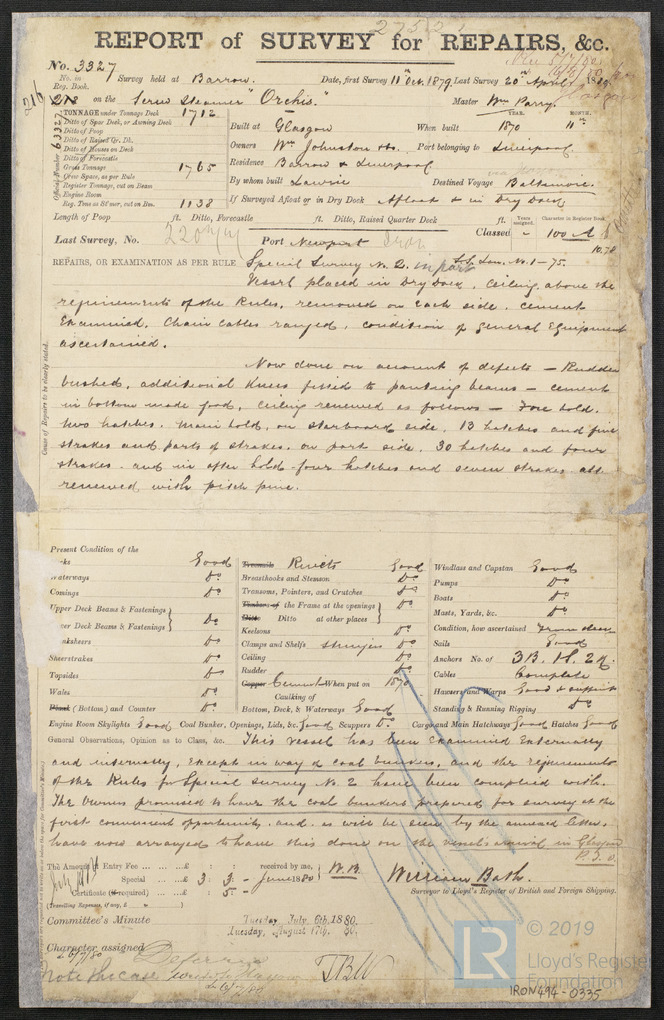 REPORT of SURVEY for REPAIRS, &c.
No. 3327
No. in Reg. Book.
Survey held at Barrow. Date, first Survey 11th Oct. 1879 Last Survey 20th April 1880
216
on the Screw Steamer "Orchis." Master Wm Parry.
TONNAGE under Tonnage Deck 1712
Ditto of Spar Deck, or Awning Deck
Ditto of Poop
Ditto of Raised Qr. Dk.
Ditto of Houses on Deck
Ditto of Forecastle
Gross Tonnage 1765
Crew Space, as per Rule
Register Tonnage, cut on Beam
Engine Room
Reg. Tons as St'mer, cut on Bm. 1138
Official Number 63327
YEAR. MONTH.
Built at Glasgow When built 1870 11
Owners Wm Johnston Port belonging to Liverpool
Residence Barrow & Liverpool
By whom built Lawrie Destined Voyage Baltimore.
If Surveyed Afloat or in Dry Dock Afloat & in Dry Dock
Length of Poop ft. Ditto, Forecastle ft. Ditto, Raised Quarter Deck ft.
Years assigned. Character in Register Book
Last Survey, No. Port Newport Iron Classed - 100 A 1
10.78
REPAIRS, OR EXAMINATION AS PER RULE Special Survey No. 2. in part
No. 1-75.
Vessel placed in Dry Dock, Ceiling, above the
requirements of the Rules, removed on each side, cement
Examined. Chain Cables ranged, condition of General Equipment
ascertained.
Now done on account of defects — Rudder
bushed, additional knees fitted to panting beams — cement
in bottom made good, ceiling renewed as follows — Fore hold.
two hatches. main hold, on starboard side, 13 hatches and five
strakes and parts of strakes. on port side, 30 hatches and four
strakes. and in after hold four hatches and seven strakes all
renewed, with pitch pine.
Cause of Repairs to be clearly stated.
Present Condition of the
ks Good
aterways Do
Comings Do
Upper Deck Beams & Fastenings }
wer Deck Beams & Fastenings } Do
nksheers Do
Sheerstrakes Do
Topsides Do
Wales Do
Plank (Bottom) and Counter Do
Treenails Rivets Good
Breasthooks and Stemson Do
Transoms, Pointers, and Crutches Do
Timbers of the Frame at the openings } Do
Ditto Ditto at other places }
Keelsons Do
Clamps and Shelfs stringers Do
Ceiling Do
Rudder Do
Copper Cement When put on 1870
Caulking of
Bottom, Deck, & Waterways Good
Windlass and Capstan Good
Pumps Do
Boats Do
Masts, Yards, &c. Do
Condition, how ascertained from deck
Sails Good
Anchors No. of 3B. 1S. 2K.
Cables Complete
Hawsers and Warps Good & suffict
Standing & Running Rigging Do
Engine Room Skylights Good Coal Bunker, Openings, Lids, &c. Good Scuppers Do Cargo and Main Hatchways Good Hatches Good
General Observations, Opinion as to Class, &c. This vessel has been examined Externally
and internally, except in way of coal bunkers, and the requirements
of the Rules for Special survey No. 2 have been complied with.
The Owners promised to have the coal bunkers prepared for survey at the
first convenient opportunity, and, as will be seen by the annexed letter,
have now arranged to have this done on the vessel's arrival in Glasgow
P.T.O.
The Amount of Entry Fee ... ... ... £ : :
Special ... ... £ 3 : 3 : -
Certificate (if required) ... £ : 5 : -
(Travelling Expenses, if any, £ )
received by me, } W.B.
June 1880
William Bath.
Surveyor to Lloyd's Register of British and Foreign Shipping.
Committee's Minute
Tuesday July 6th, 1880.
Tuesday, August 17th, 80.
Character assigned Deferred
26/7/80
Note the case
26/7/80
© 2019
Lloyd's Register
Foundation
LR
IRON494-0335